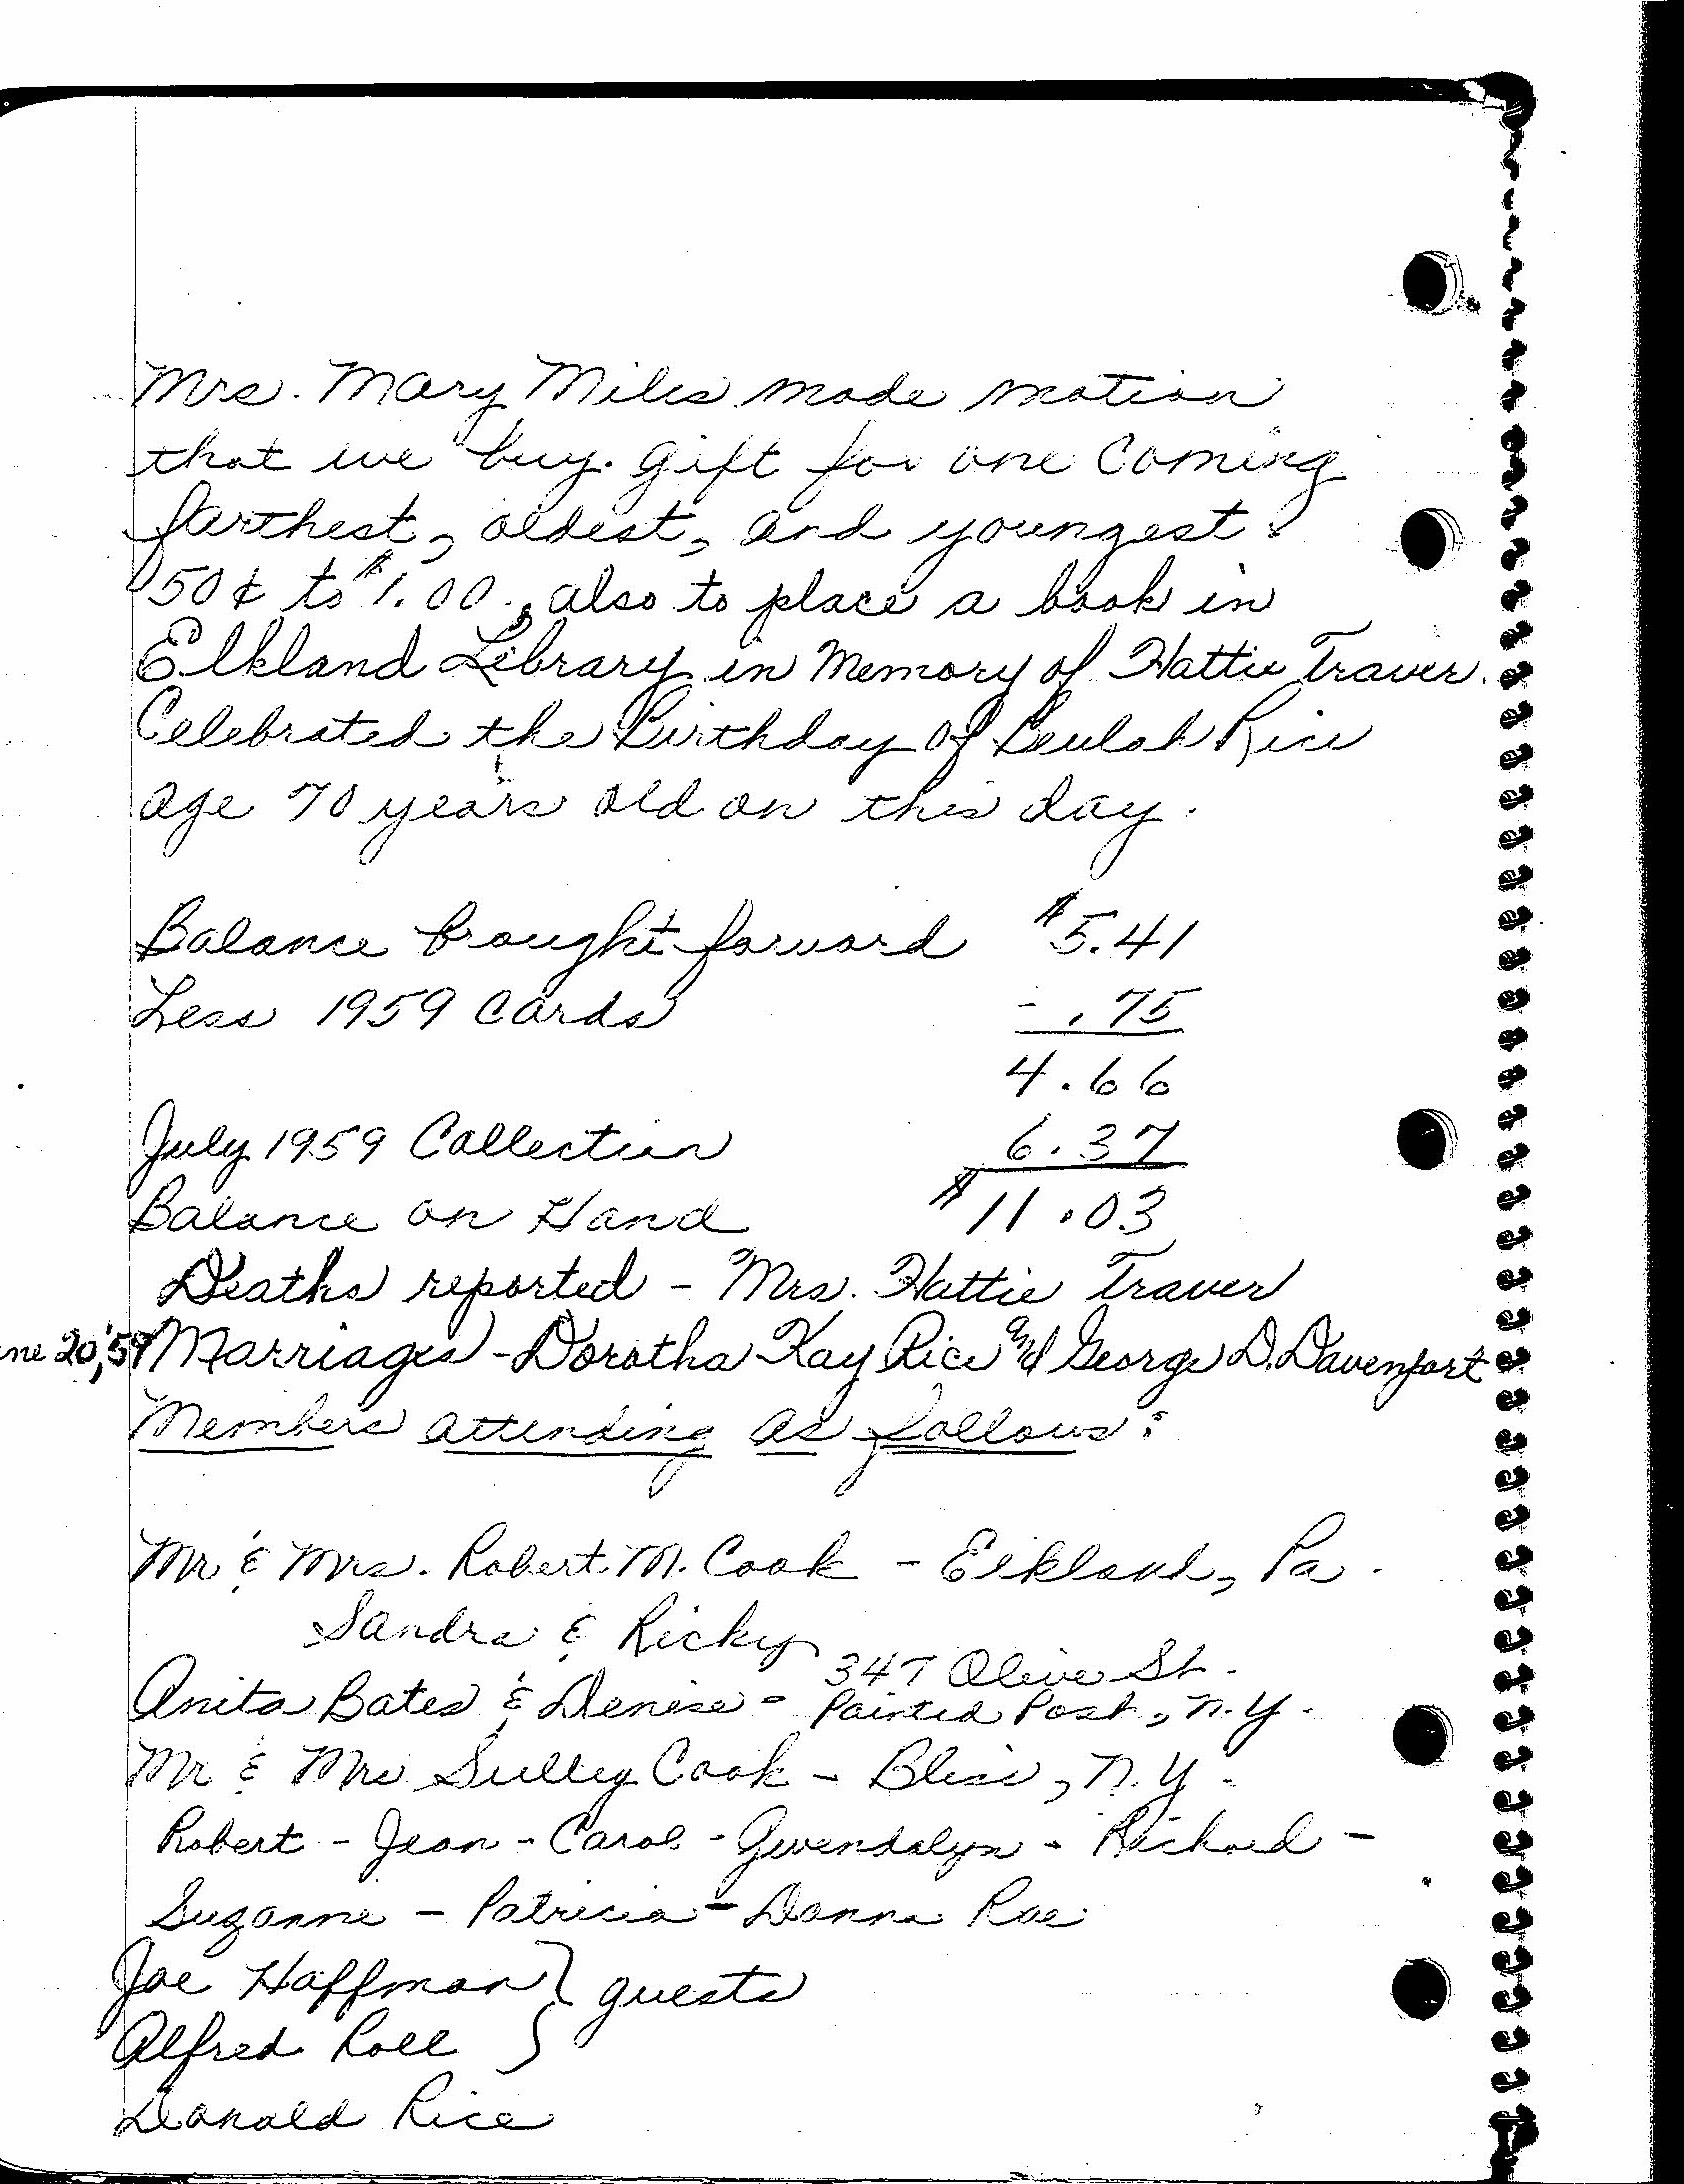 Mrs. Mary Miles made motion
that we buy gift for one Coming
farthest, oldest, and youngest.
50¢ to $1.00, also to place a book in
Elkland Library in Memory of Hattie Traver.
Celebrated the Birthday of Beulah Rice
age 70 years old on this day.
Balance brought forward $5.41
Less 1959 Cards - .75
4.66
July 1959 Collection 6.37
Balance on Hand $11.03
Deaths reported - Mrs. Hattie Traver
ne 20, '59 Marriages - Dorotha Kay Rice and George D. Davenport
Members attending as follows:
Mr & Mrs. Robert M. Cook - Elkland, Pa.
Sandra & Ricky
347 Olive St.
Anita Bates & Denise - Painted Post, N.Y.
Mr & Mrs Sulley Cook - Bliss, N.Y.
Robert - Jean - Carol - Gwendolyn - Richard -
Suzanne - Patricia - Donna Rae
Joe Hoffman } guests
Alfred Roll }
Donald Rice